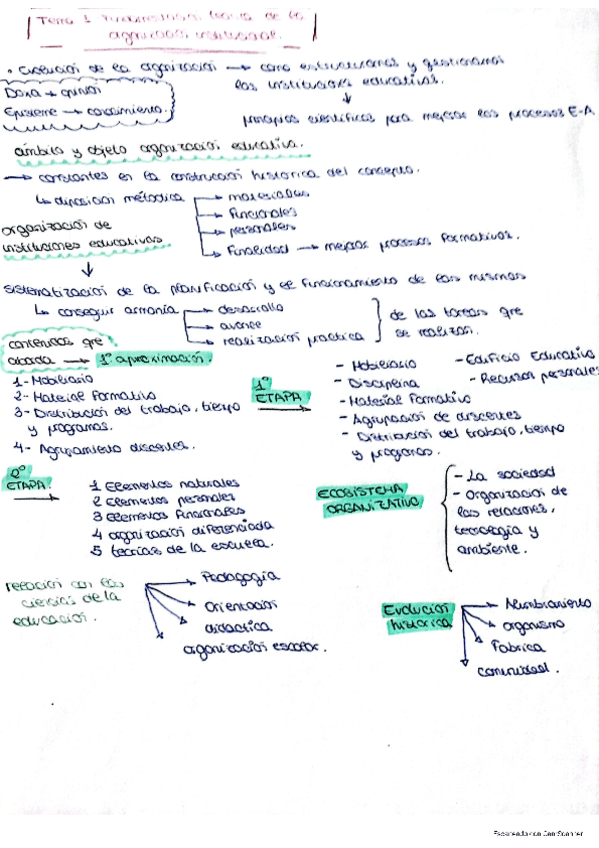 Tema 1 Fundamentación teórica de la
organización institucional.
• Evolución de la organización → como estructuramos y gestionamos
las instituciones educativas.
Doxa → opinión
Episteme → conocimiento.
principios científicos para mejorar los procesos E-A
ámbito y objeto organización educativa.
→ constantes en la construcción histórica del concepto.
↳ disposición metódica
materiales
funcionales
personales
Finalidad → mejorar procesos formativos.
organización de
instituciones educativas
sistematización de la planificación y el funcionamiento de las mismas
↳ conseguir armonía
desarrollo
avance
realización práctica
de las tareas que
se realizan.
contenidos que
aborda → 1º aproximación:
1- Mobiliario
2- Material Formativo
3- Distribución del trabajo, tiempo
y programas.
4- Agrupamiento discentes.
1º
ETAPA:
- Mobiliario
- Disciplina
- Material Formativo
- Agrupación de discentes
- Distribución del trabajo, tiempo
y programas.
- Edificio Educativo
- Recursos personales
2º
ETAPA:
1 Elementos naturales
2 Elementos personales
3 Elementos Funcionales
4 organización diferenciada
5 teorías de la escuela.
ECOSISTEMA
ORGANIZATIVO
- La sociedad
- Organización de
las relaciones,
tecnología y
ambiente.
relación con las
ciencias de la
educación.
Pedagogía
Orientación
didáctica
organización escolar.
Evolución
histórica
Alumbramiento
organismo
Fábrica
comunidad.
Escaneado con CamScanner